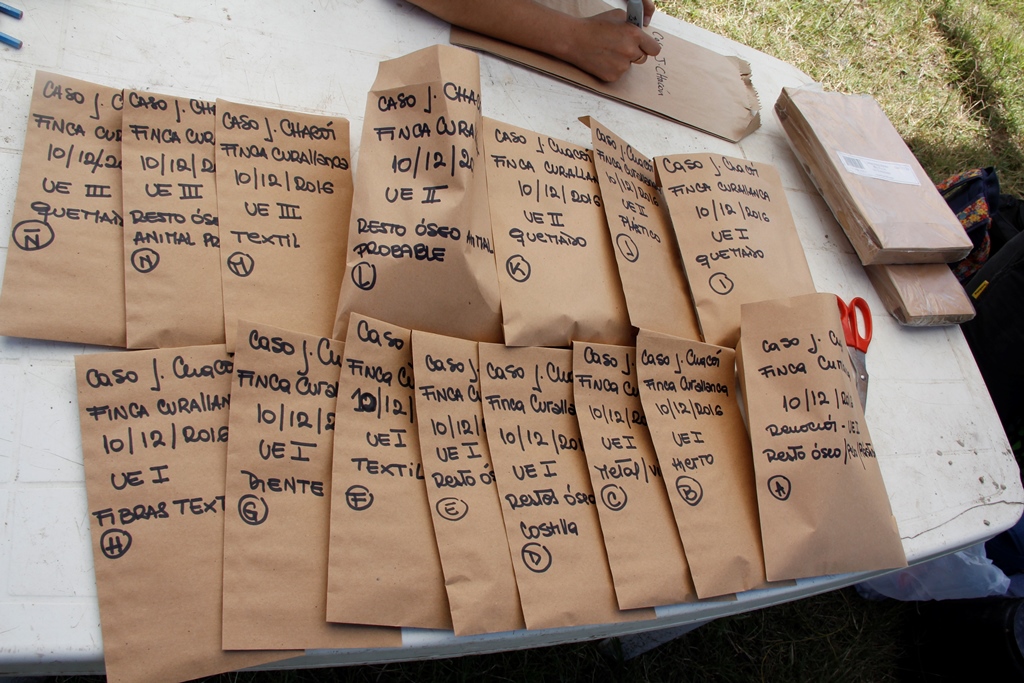 CASO J. CHACÓN
CASO J. C
FINCA CUR
10/12/2
UE III
QUEMAD
Ñ
CASO J. CHA
FINCA CURA
10/12/20
UE III
RESTO ÓSE
ANIMAL PR
N
CASO J. CHACÓI
FINCA CURALLANCA
10/12/2016
UE III
TEXTIL
M
CASO J. CHA
FINCA CURA
10/12/20
UE II
RESTO ÓSEO ANIMAL
PROBABLE
L
CASO J. CHACÓ
FINCA CURALLAN
10/12/2016
UE II
QUEMADO
K
CASO J. CHACÓ
FINCA CURALLANCA
10/12/2016
UE II
PLÁSTICO
J
CASO J. CHACÓI
FINCA CURALLANCA
10/12/2016
UE I
QUEMADO
I
CASO J. CHACÓ
FINCA CURALLAN
10/12/2016
UE I
FIBRAS TEXT
H
CASO J. CH
FINCA CURAL
10/12/20
UE I
DIENTE
G
CASO J.
FINCA C
10/12/
UE I
TEXTIL
F
CASO J. C
FINCA CU
10/12/
UE I
RESTO ÓS
E
CASO J. CHA
FINCA CURALLA
10/12/20
UE I
RESTOS ÓSEO
COSTILLA
D
CASO J. C
FINCA CU
10/12/20
UE I
METAL/
C
CASO J. CHACÓI
FINCA CURALLANCA
10/12/2016
UE I
HIERRO
B
CASO J. C
FINCA CUR
10/12/20
REMOCIÓN - UE I
RESTO ÓSEO/
A